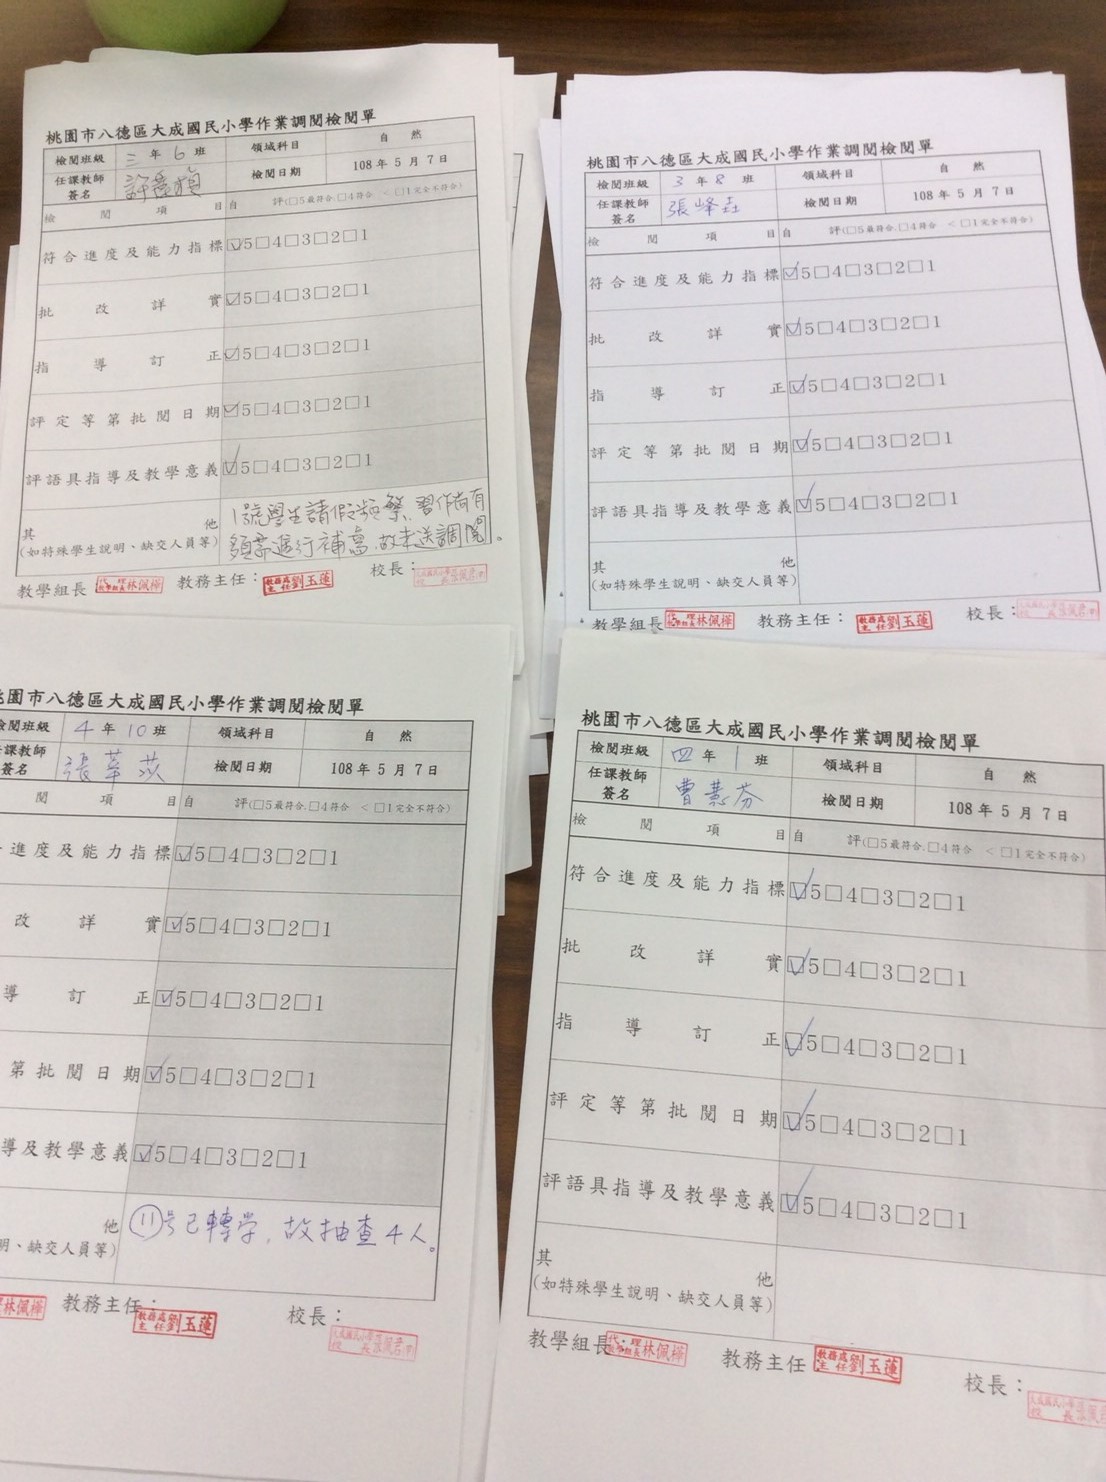 桃園市八德區大成國民小學作業調閱檢閱單
檢閱班級 三年6班 領域科目 自然
任課教師簽名 許 檢閱日期 108年5月7日
檢閱項目 自評(□5最符合.□4符合 <□1完全不符合)
符合進度及能力指標 ☑5□4□3□2□1
批改詳實 ☑5□4□3□2□1
指導訂正 ☑5□4□3□2□1
評定等第批閱日期 ☑5□4□3□2□1
評語具指導及教學意義 ☑5□4□3□2□1
其他
(如特殊學生說明、缺交人員等)
1號學生請假頻繁,習作尚有
頗需進行補寫,故未送調閱。
教學組長 代理教學組長林佩樺 教務主任: 教務處主任劉玉蓮 校長:
桃園市八德區大成國民小學作業調閱檢閱單
檢閱班級 3年8班 領域科目 自然
任課教師簽名 張峰垚 檢閱日期 108年5月7日
檢閱項目 自評(□5最符合.□4符合 <□1完全不符合)
符合進度及能力指標 ☑5□4□3□2□1
批改詳實 ☑5□4□3□2□1
指導訂正 ☑5□4□3□2□1
評定等第批閱日期 ☑5□4□3□2□1
評語具指導及教學意義 ☑5□4□3□2□1
其他
(如特殊學生說明、缺交人員等)
教學組長 代理教學組長林佩樺 教務主任: 教務處主任劉玉蓮 校長:
園市八德區大成國民小學作業調閱檢閱單
檢閱班級 4年10班 領域科目 自然
任課教師簽名 張 檢閱日期 108年5月7日
閱項目 自評(□5最符合.□4符合 <□1完全不符合)
進度及能力指標 ☑5□4□3□2□1
改詳實 ☑5□4□3□2□1
導訂正 ☑5□4□3□2□1
第批閱日期 ☑5□4□3□2□1
導及教學意義 ☑5□4□3□2□1
他
明、缺交人員等)
⑪号已轉学,故抽查4人。
林佩樺 教務主任: 教務處主任劉玉蓮 校長:
桃園市八德區大成國民小學作業調閱檢閱單
檢閱班級 四年1班 領域科目 自然
任課教師簽名 曹慧芬 檢閱日期 108年5月7日
檢閱項目 自評(□5最符合.□4符合 <□1完全不符合)
符合進度及能力指標 ☑5□4□3□2□1
批改詳實 ☑5□4□3□2□1
指導訂正 ☑5□4□3□2□1
評定等第批閱日期 ☑5□4□3□2□1
評語具指導及教學意義 ☑5□4□3□2□1
其他
(如特殊學生說明、缺交人員等)
教學組長: 代理教學組長林佩樺 教務主任 教務處主任劉玉蓮 校長: